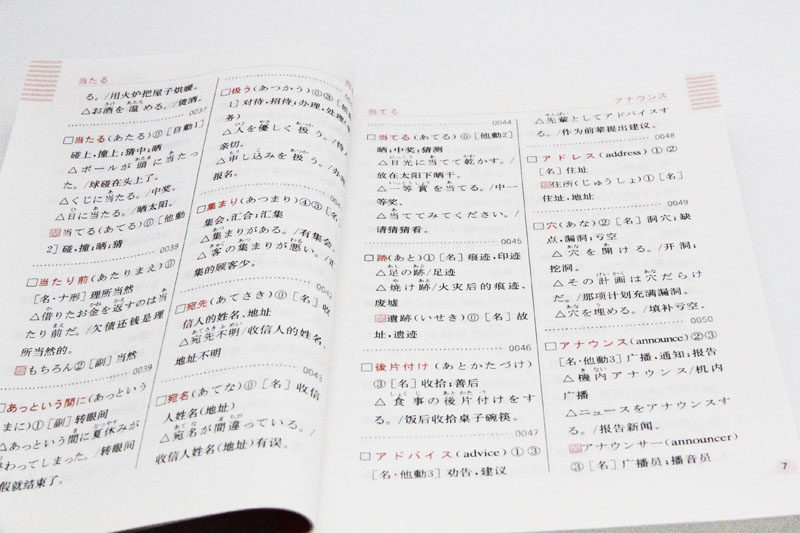 当たる
る。/用火炉把屋子烘暖。
△お酒を温める。/烫酒。
0037
□当たる(あたる)⓪[自動1]
碰上,撞上;猜中;晒
△ボールが頭に当たっ
た。/球碰在头上了。
△くじに当たる。/中奖。
△日に当たる。/晒太阳。
当てる(あてる)⓪[他動
2]碰,撞;晒;猜
0038
□当たり前(あたりまえ)⓪
[名·ナ形]理所当然
△借りたお金を返すのは当
たり前だ。/欠债还钱是理
所当然的。
もちろん②[副]当然
0039
□あっという間に(あっという
まに)①[副]转眼间
△あっという間に夏休みが
終わってしまった。/转眼间
假就结束了。
□扱う(あつかう)⓪③
1]对待,招待;办理,处理
务)
△人を優しく扱う。/
亲切。
△申し込みを扱う。/
报名。
□集まり(あつまり)④③[名
集会,汇合;汇集
△集まりがある。/有集会
△客の集まりが悪い。/
集的顾客少。
□宛先(あてさき)⓪[名]收
信人的姓名、地址
△宛先不明/收信人的姓名、
地址不明
0043
□宛名(あてな)⓪[名]收信
人姓名(地址)
△宛名が間違っている。/
收信人姓名(地址)有误。
当てる
0044
□当てる(あてる)⓪[他動2]
晒;中奖;猜测
△日光に当てて乾かす。/
放在太阳下晒干。
△一等賞を当てる。/中一
等奖。
△当ててみてください。/
请猜猜看。
0045
□跡(あと)①[名]痕迹,印迹
△足の跡/足迹
△焼け跡/火灾后的痕迹、
废墟
遺跡(いせき)⓪[名]故
址,遗迹
0046
□後片付け(あとかたづけ)
③[名]收拾;善后
△食事の後片付けをす
る。/饭后收拾桌子碗筷。
0047
□アドバイス(advice)①③
[名·他動3]劝告,建议
アナウンス
△先輩としてアドバイスす
る。/作为前辈提出建议。
0048
□アドレス(address)①②
[名]住址
住所(じゅうしょ)①[名]
住址,地址
0049
□穴(あな)②[名]洞穴;缺
点,漏洞;亏空
△穴を開ける。/开洞;
挖洞。
△その計画は穴だらけ
だ。/那项计划充满漏洞。
△穴を埋める。/填补亏空。
0050
□アナウンス(announce)②③
[名·他動3]广播,通知;报告
△機内アナウンス/机内
广播
△ニュースをアナウンスす
る。/报告新闻。
アナウンサー(announcer)
③[名]广播员;播音员
7